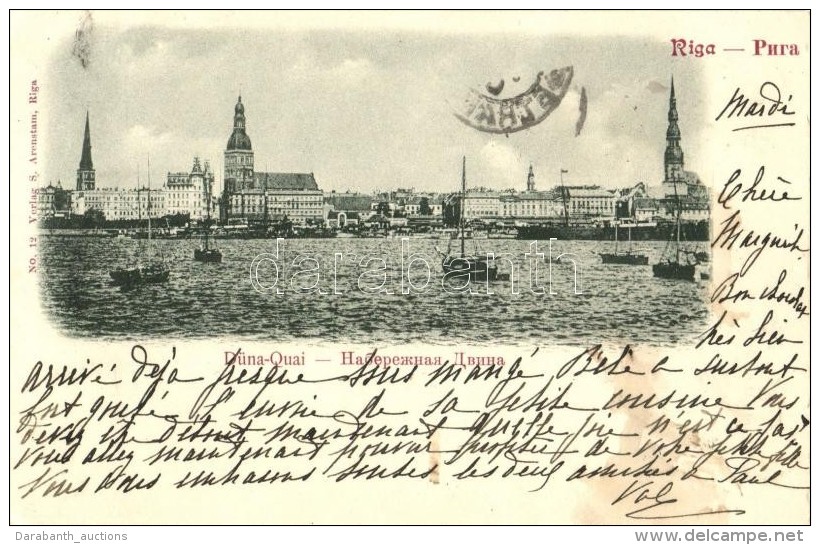 Riga — Рига
No. 12 Verlag S. Arenstam, Riga
Mardi
Chère
Marguite
Bon chocolat
très bien
Düna-Quai — Набережная Двина
arrivé déja presque tous mangé Bébé a surtout
fut l'envie de sa petite cousine Vous
devez être maintenant quelle joie n'est ce pas
Vous allez maintenant pouvoir profiter de votre petite fille
Nous vous embrassons toutes les deux amitiés à Paul
Val
darabanth
Darabanth_auctions
www.delcampe.net